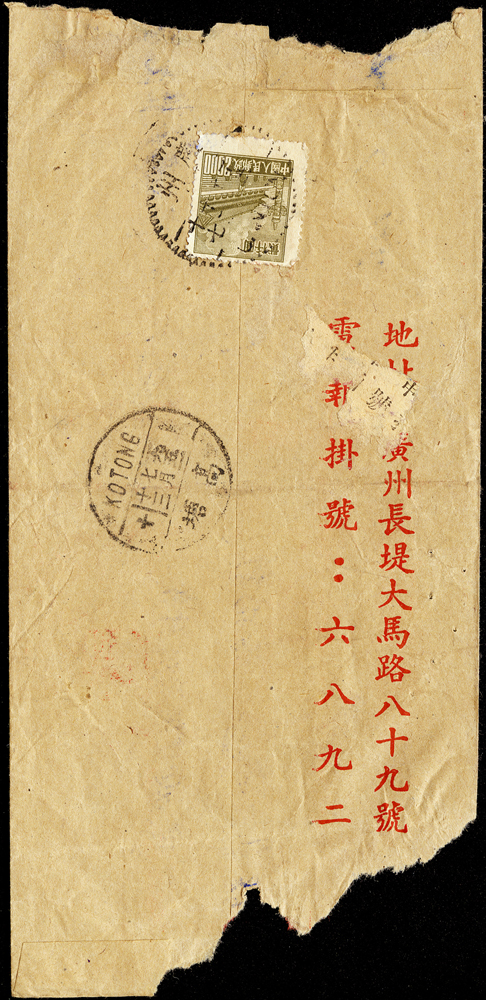 地址 廣州長堤大馬路八十九號
電報掛號：六八九二
號
中國人民郵政 2000
貳仟圓
KOTONG
高塘